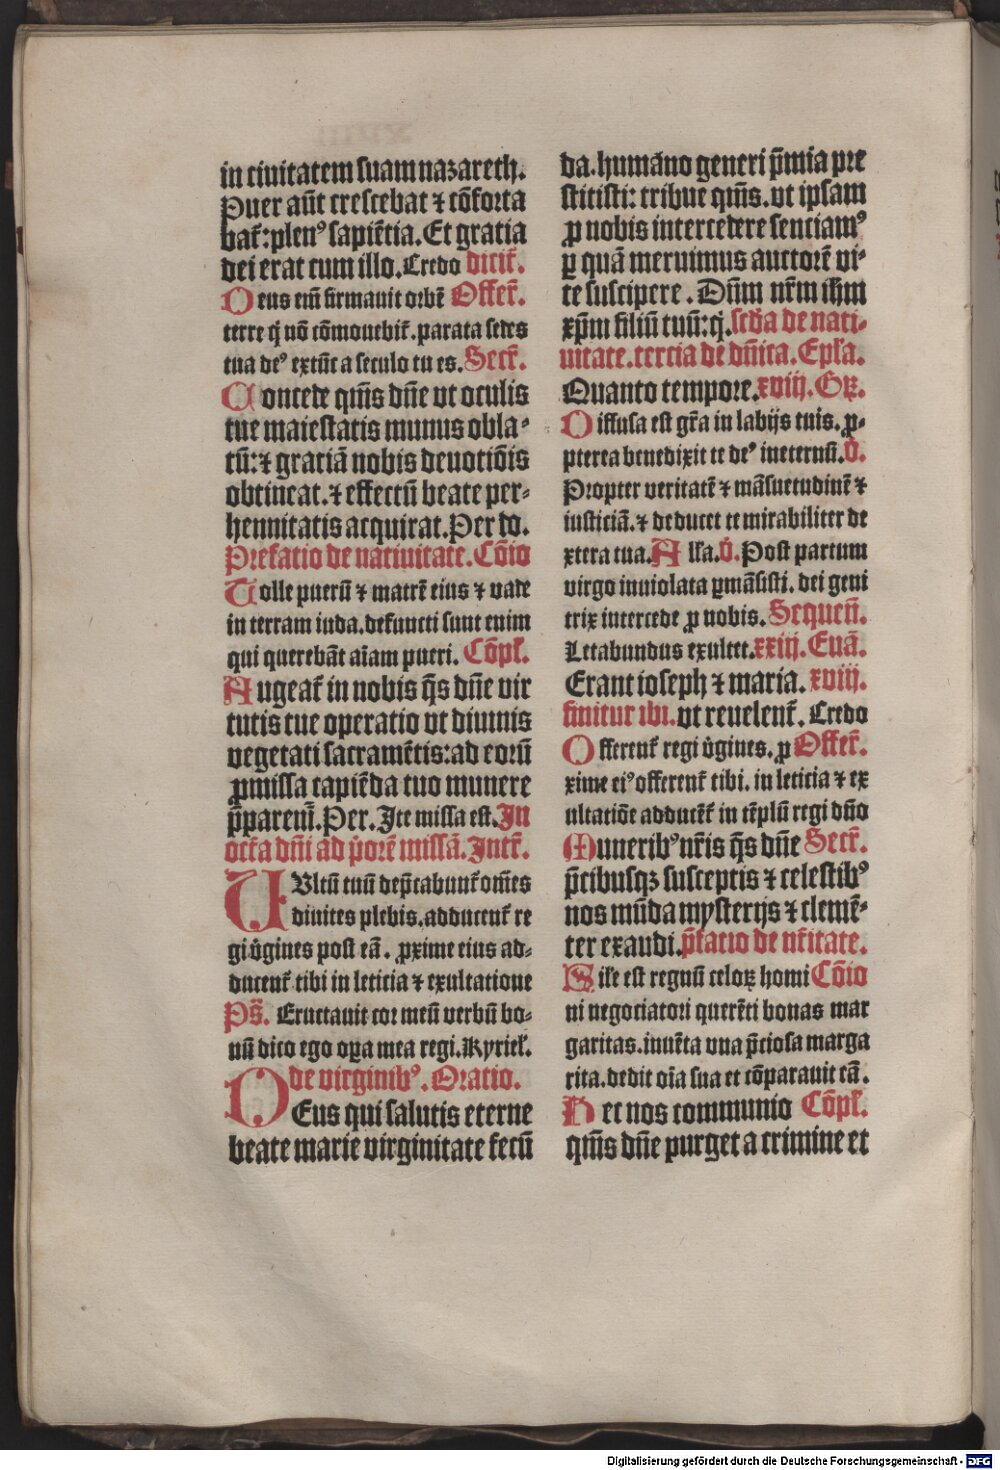 in ciuitatem suam nazareth.
Puer aūt crescebat ⁊ cōforta
bat̄:plenꝰ sapiētia. Et gratia
dei erat cum illo. Credo dicit̄.
Deus em̄ firmauit orbē Offer̄.
terre q̄ nō cōmouebit̄. parata sedes
tua deꝰ extūc a seculo tu es. Secr̄.
Concede qm̄s dn̄e vt oculis
tue maiestatis munus obla⸗
tū:⁊ gratiā nobis deuotiōis
obtineat.⁊ effectū beate per⸗
hennitatis acquirat. Per do.
Prefatio de natiuitate. Cōio
Tolle puerū ⁊ matrē eius ⁊ vade
in terram iuda. defuncti sunt enim
qui querebāt aīam pueri. Cōpl̄.
Augeat̄ in nobis q̄s dn̄e vir
tutis tue operatio vt diuinis
vegetati sacramētis:ad eorū
ꝓmissa capiēda tuo munere
p̄parem̄. Per. Ite missa est. In
octa dn̄i ad p̓orē missā. Intr̄.
VUltū tuū dep̄cabunt̄ om̄es
diuites plebis. adducent̄ re
gi v̓gines post eā. ꝓxime eius ad⸗
ducent̄ tibi in leticia ⁊ exultatione
Ps̄. Eructauit cor meū verbū bo⸗
nū dico ego oꝑa mea regi. Kyriel̄.
de virginibꝰ. Oratio.
DEus qui salutis eterne
beate marie virginitate fecū
da. humāno generi p̄mia pre
stitisti: tribue qm̄s. vt ipsam
ꝓ nobis intercedere senciamꝰ
ꝑ quā meruimus auctorē vi⸗
te suscipere. Dn̄m nr̄m ihm
xp̄m filiū tuū:q̄. scd̄a de nati⸗
uitate. tercia de dn̄ica. Epl̄a.
Quanto tempore. xviij. Gꝝ.
Diffusa est gr̄a in labijs tuis. ꝓ⸗
pterea benedixit te deꝰ ineternū. V̓.
Propter veritatē ⁊ māsuetudinē ⁊
iusticiā. ⁊ deducet te mirabiliter de
xtera tua. All̄a. V̓. Post partum
virgo inuiolata ꝑmāsisti. dei geni
trix intercede ꝓ nobis. Sequen̄.
Letabundus exultet. xxiij. Euā.
Erant ioseph ⁊ maria. xviij.
finitur ibi. vt reuelent̄. Credo
Offerent̄ regi v̓gines. ꝓ Offer̄.
xime eiꝰ offerent̄ tibi. in leticia ⁊ ex
ultatiōe adducēt̄ in tēplū regi dn̄o
Muneribꝰ nr̄is q̄s dn̄e Secr̄.
p̄cibusqꝫ susceptis ⁊ celestibꝰ
nos mūda mysterijs ⁊ clemē⸗
ter exaudi. p̄fatio de nr̄itate.
Sil̄e est regnū celoꝝ homi Cōio
ni negociatori querēti bonas mar
garitas. inuēta vna p̄ciosa marga
rita. dedit oīa sua et cōparauit eā.
Het nos communio Cōpl̄.
qm̄s dn̄e purget a crimine et
Digitalisierung gefördert durch die Deutsche Forschungsgemeinschaft - DFG